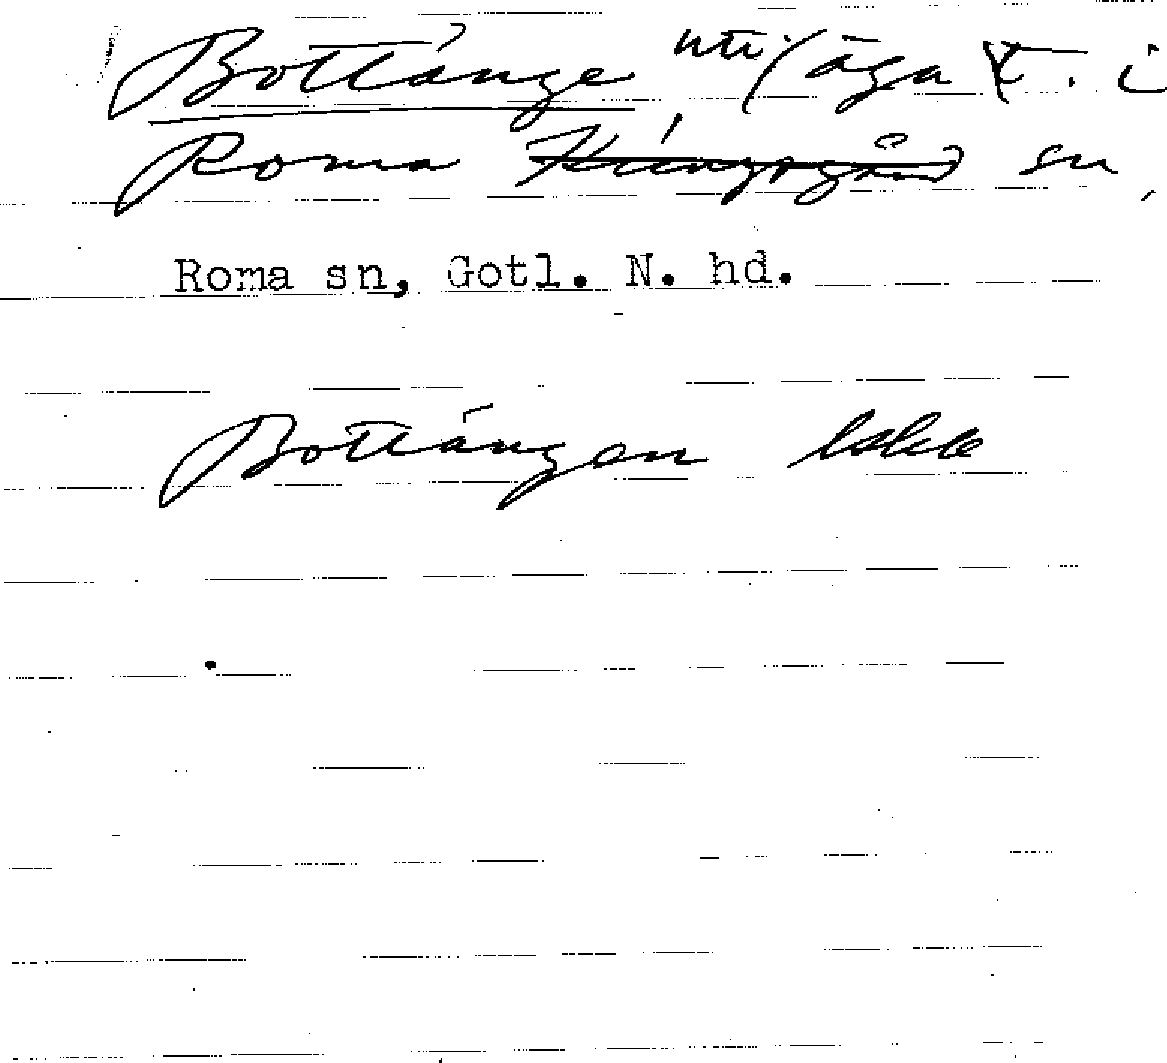 Bottänge uti (äga X. i
Roma Kungsgård sn,
Roma sn, Gotl. N. hd.
Bottängen